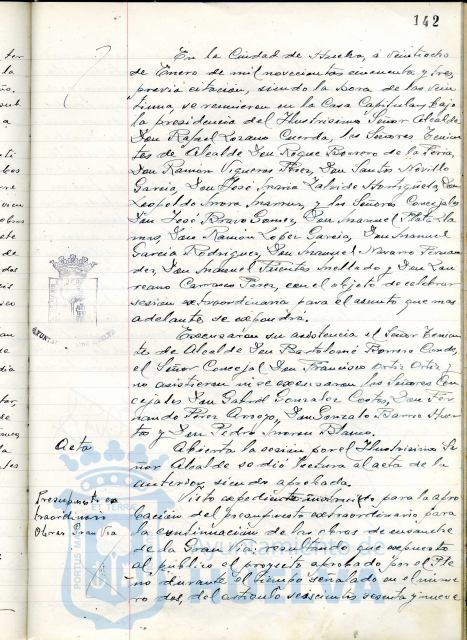 142
En la Ciudad de Huelva, a veintiocho
de Enero de mil novecientos cincuenta y tres,
previa citación, siendo la hora de las vein
tiuna, se reunieron en la Casa Capitular, bajo
la presidencia del Ilustrísimo Señor Alcalde
Don Rafael Lozano Cuerda, los Señores Tenien
tes de Alcalde Don Roque Borrero de la Feria,
Don Ramón Vigueras Pérez, Don Santos
García, Don José María Zalvide Hortigüela, Don
Leopoldo Mora, y los Señores Concejales
Don José Bravo Gómez, Don Manuel Plata Lla
mas, Don Ramón López García, Don Manuel
García Rodríguez, Don Manuel Navarro Fernan
dez, Don Manuel Fuentes Mellado y Don Lau
reano Carrasco Pérez, con el objeto de celebrar
sesión extraordinaria para el asunto que mas
adelante se expondrá.
Excusaron su asistencia el Señor Tenien
te de Alcalde Don Bartolomé Romero Conde,
el Señor Concejal Don Francisco Ortiz Ortiz,
no asistieron ni se excusaron los Señores Con
cejales Don Gabriel Gonzalez Don Fer
nando Pérez Arroyo, Don Gonzalo Barro Huer
to y Don Pedro Blanco.
Acta
Abierta la sesión por el Ilustrísimo Se
ñor Alcalde se dió lectura al acta de la
anterior, siendo aprobada.
Presupuesto ex
traordinario
Obras Gran Via
Visto expediente instruido para la apro
bación del presupuesto extraordinario para
la continuación de las obras de ensanche
de la Gran Via, resultando que expuesto
al público el proyecto aprobado por el Ple
no durante el tiempo señalado en el núme
ro dos, del artículo seiscientos sesenta y nueve